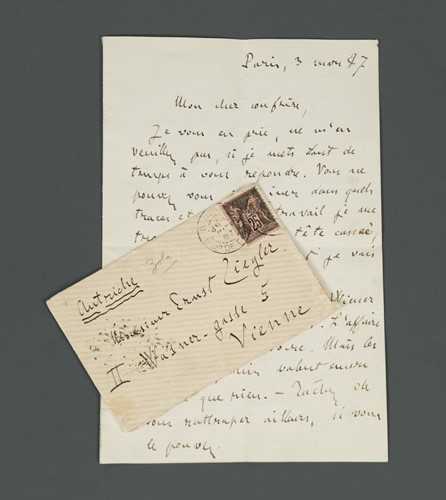 Paris, 3 mars 87
Mon cher confrère,
Je vous en prie, ne m'en
veuillez pas, si je mets tant de
temps à vous répondre. Vous ne
pouvez vous dans quels
tracas et travail je me
tête cassée,
je vais
25
Zola
Autriche
Monsieur Ernst Ziegler
II Wasner-gasse 5
Vienne
Wiener
L'affaire
Mais les
valent encore
que rien. — Tâchez de
vous rattraper ailleurs, si vous
le pouvez.